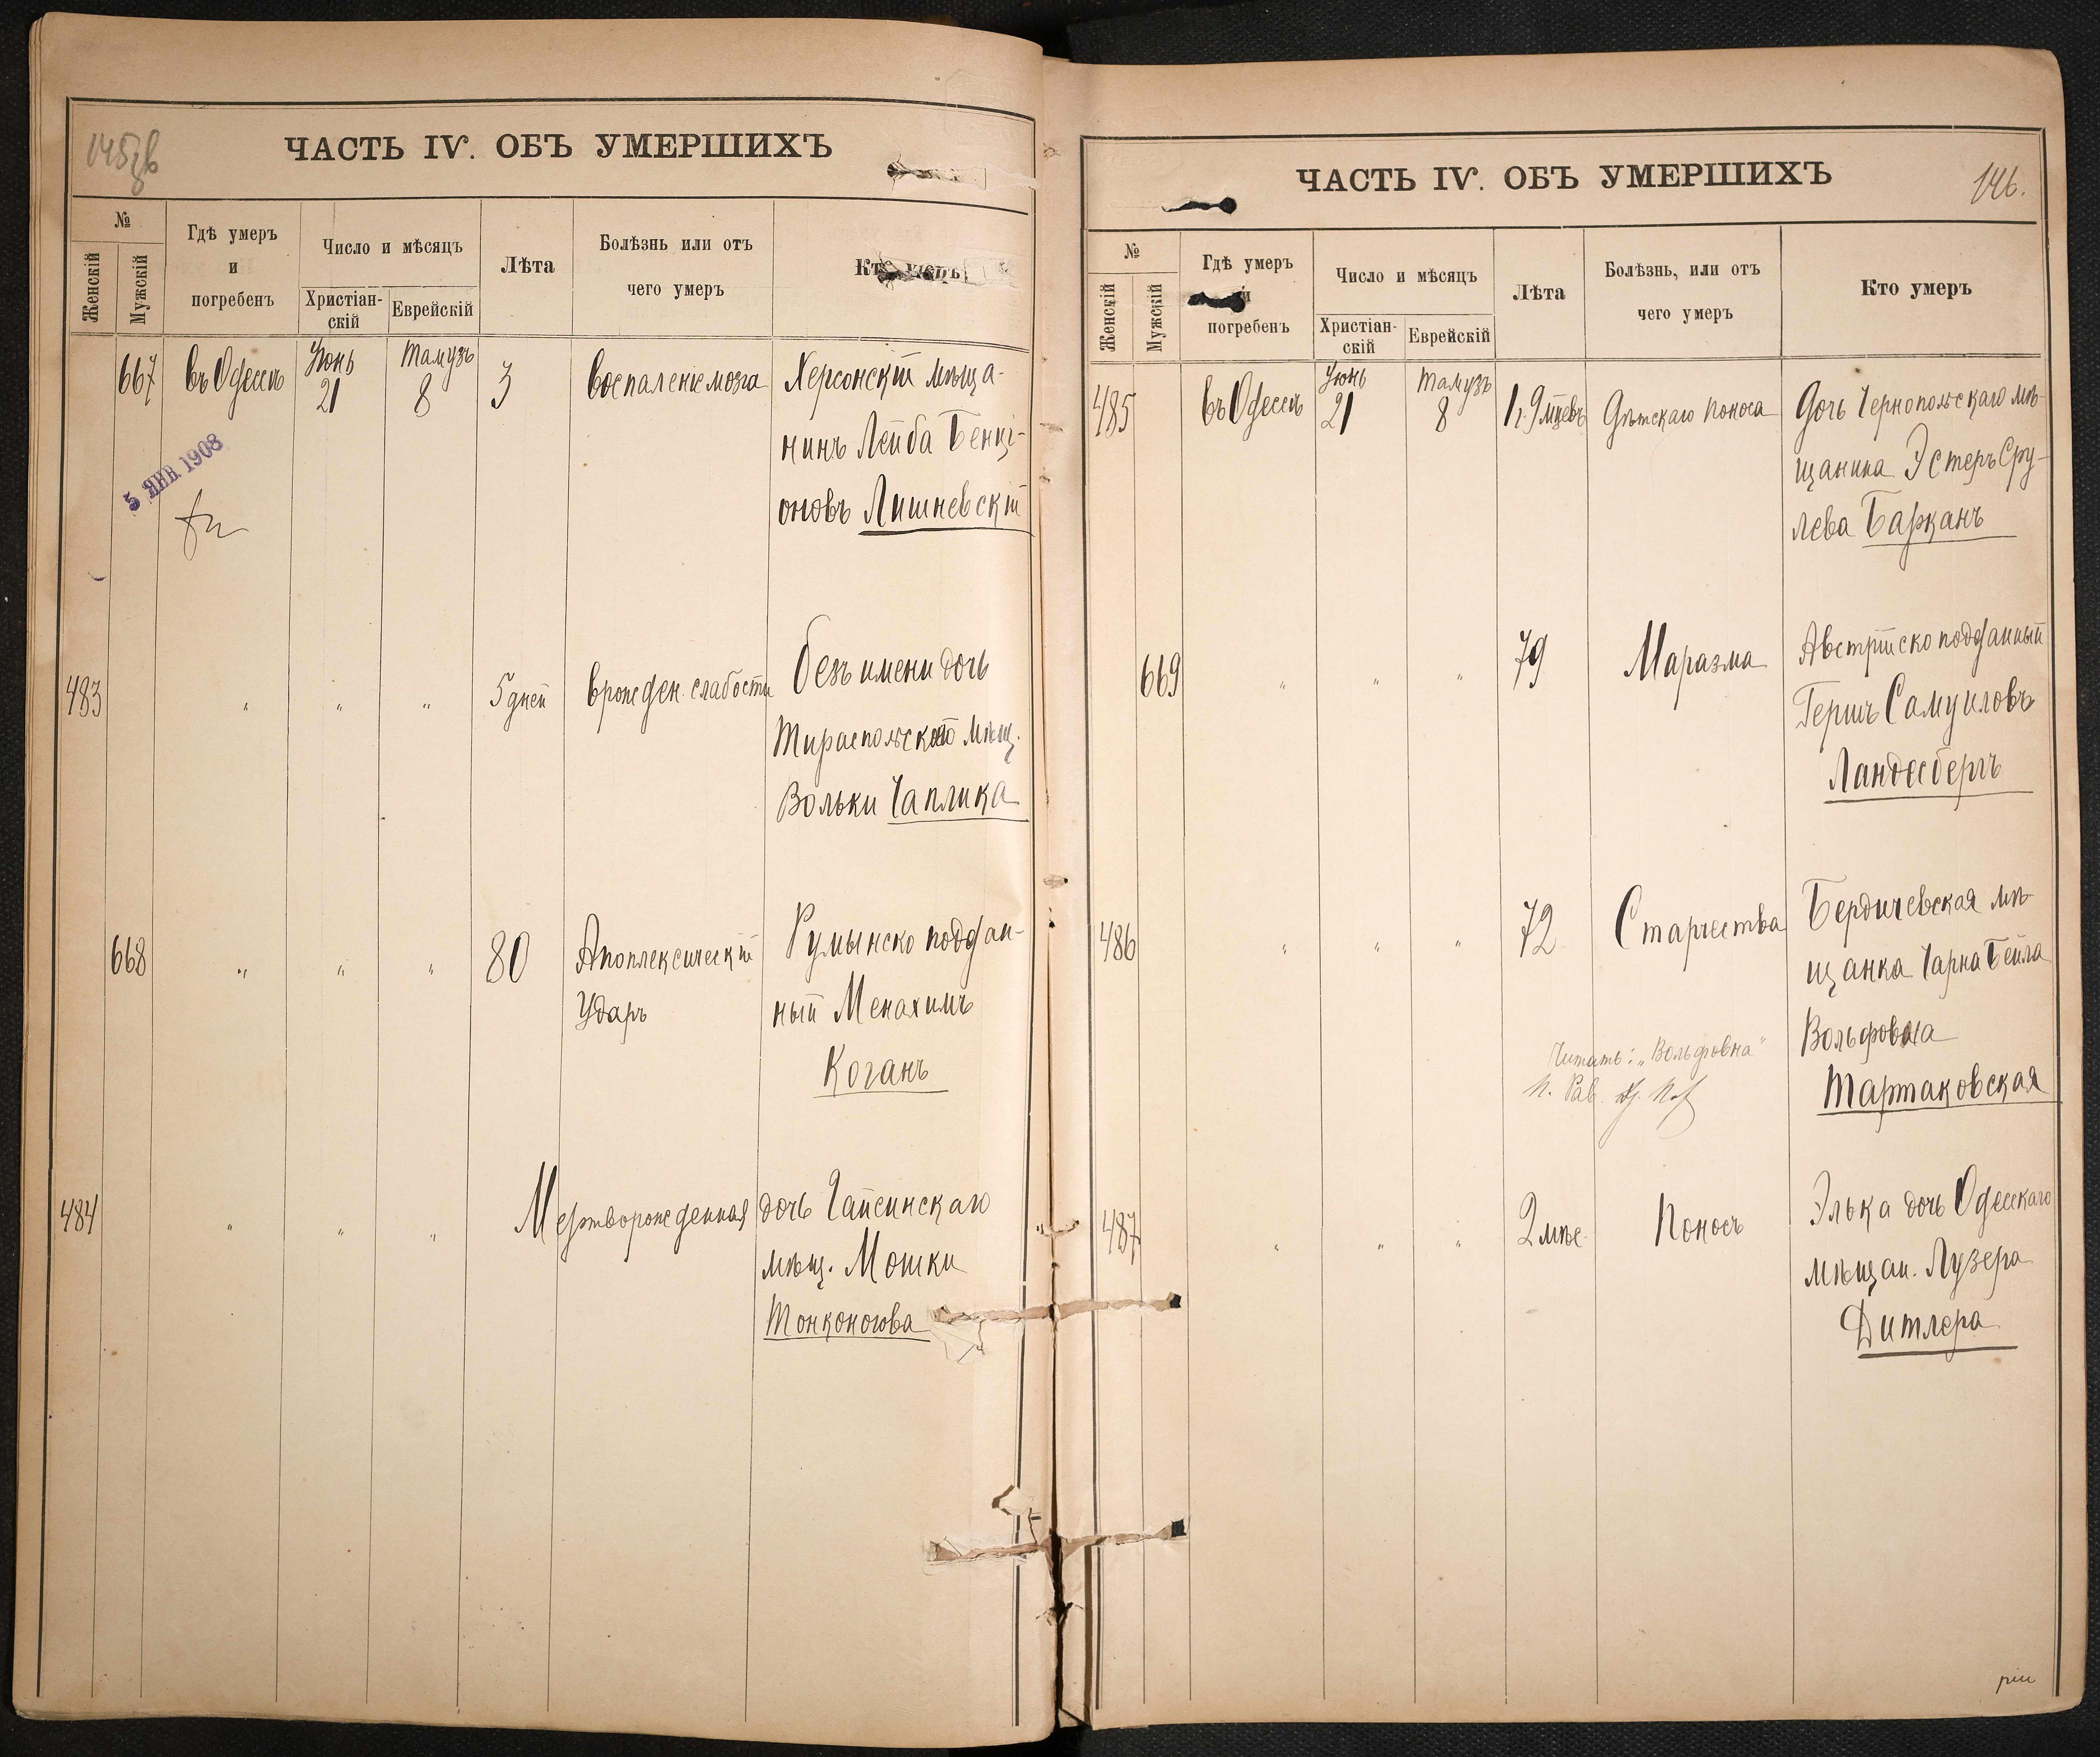 145
ЧАСТЬ IV. ОБЪ УМЕРШИХЪ
№
Женскій
Мужскій
Гдѣ умеръ
и
погребенъ
Число и мѣсяцъ
Христіан-
скій
Еврейскій
Лѣта
Болѣзнь или отъ
чего умеръ
Кто умеръ
667 въ Одессѣ Іюнь 21 Тамузъ 8 3 воспаленіе мозга Херсонскій мѣща-
нинъ Лейба Бенці-
оновъ Лишневскій
5 ЯНВ 1908
483 „ „ „ 5 дней врожден. слабости безъ имени дочь
Тираспольскаго мѣщ.
Вольки Чаплика
668 „ „ „ 80 Апоплексическій Румынско поддан-
Ударъ ный Менахимъ
Коганъ
484 „ „ „ Мертворожденная дочь Гайсинскаго
мѣщ. Мошки
Тонконогова
146.
ЧАСТЬ IV. ОБЪ УМЕРШИХЪ
№
Женскій
Мужскій
Гдѣ умеръ
и
погребенъ
Число и мѣсяцъ
Христіан-
скій
Еврейскій
Лѣта
Болѣзнь, или отъ
чего умеръ
Кто умеръ
485 въ Одессѣ Іюнь 21 Тамузъ 8 1 г. 9 мцевъ Дѣтскаго поноса Дочь Чернопольскаго мѣ-
щанина Эстеръ Сру-
лева Барканъ
669 „ „ „ 79 Маразма Австрійско подданный
Гершъ Самуиловъ
Ландесбергъ
486 „ „ „ 72 Старчества Бердичевская мѣ-
щанка Чарна Бейла
Вольфовна
Тартаковская
Читать: „Вольфовна"
П. Рав.
487 „ „ „ 2 мѣс. Поносъ Элька дочь Одесскаго
мѣщан. Лузера
Дитлера